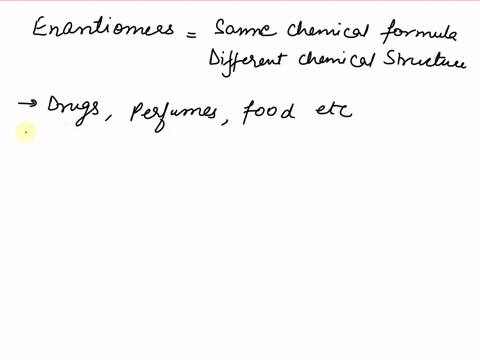 Enantiomers = Same chemical formula
Different chemical Structure
→ Drugs, Perfumes, food etc